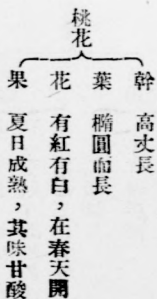 桃花
幹 高丈長
葉 橢圓而長
花 有紅有白，在春天開
果 夏日成熟，其味甘酸